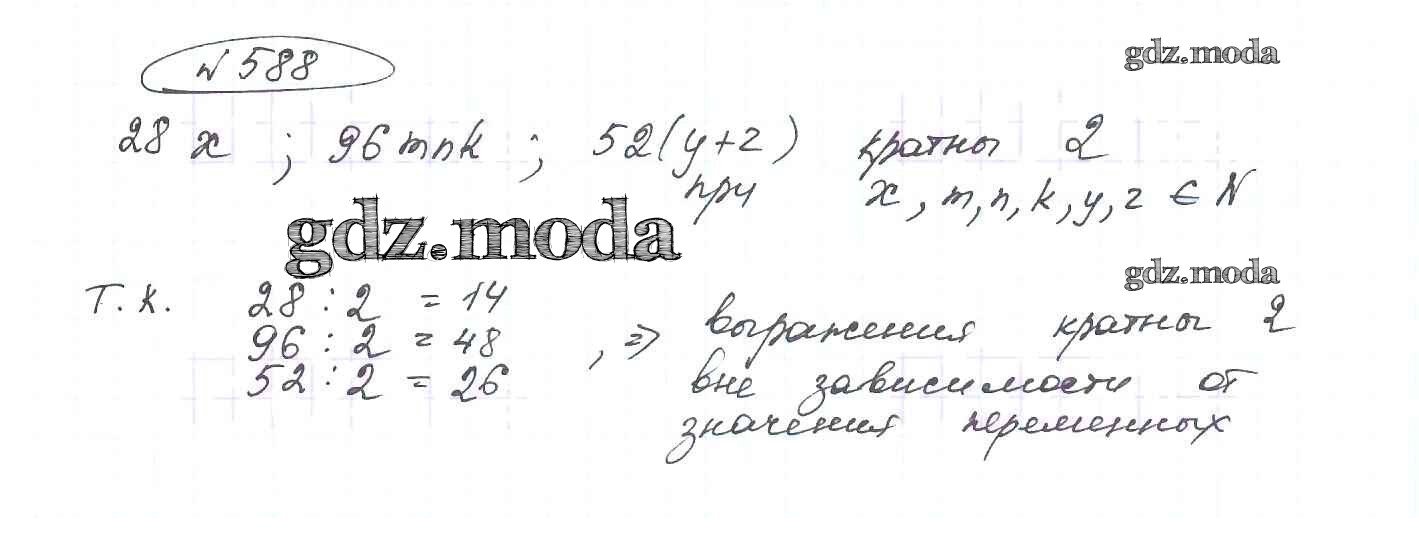 № 588
gdz.moda
28x ; 96mnk ; 52(y+z) кратны 2
при x, m, n, k, y, z ∈ N
gdz.moda
gdz.moda
Т.к. 28 : 2 = 14
96 : 2 = 48
52 : 2 = 26
, => выражения кратны 2
вне зависимости от
значения переменных